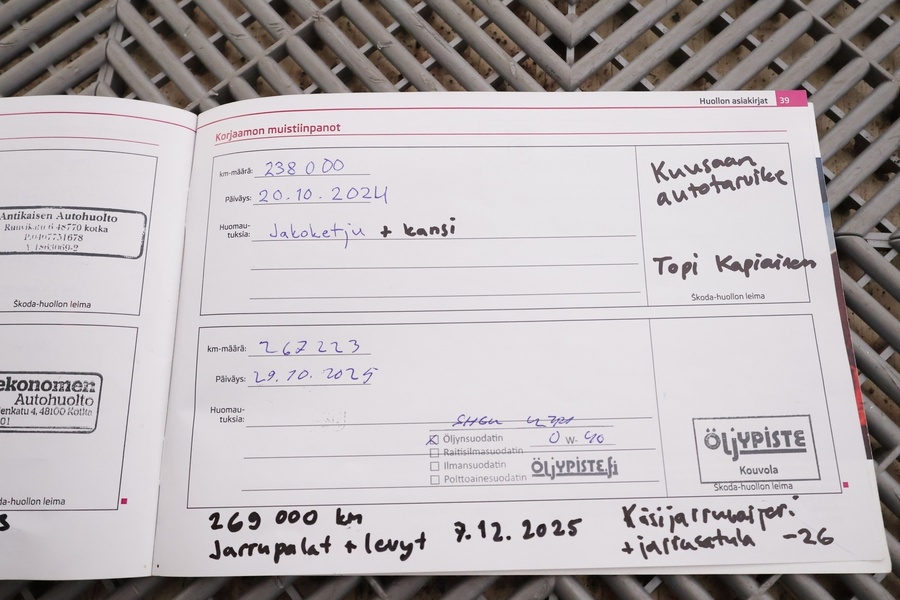 Huollon asiakirjat 39
Korjaamon muistiinpanot
Antikaisen Autohuolto
48770 kotka
Škoda-huollon leima
ekonomen
Autohuolto
enkatu 4, 48100 Kotka
01
Škoda-huollon leima
s
km-määrä: 238 000
Päiväys: 20.10.2024
Huomau-
tuksia: Jakoketju + kansi
Kuusaan
autotarvike
Topi Kapiainen
Škoda-huollon leima
km-määrä: 267 223
Päiväys: 29.10.2025
Huomau-
tuksia:
Öljynsuodatin 0 W-40
Raitisilmasuodatin
Ilmansuodatin
Polttoainesuodatin
ÖLJYPISTE.fi
ÖLJYPISTE
Kouvola
Škoda-huollon leima
269 000 km
Jarrupalat + levyt 7.12.2025
Käsijarruvaijeri
+ jarrusatula -26